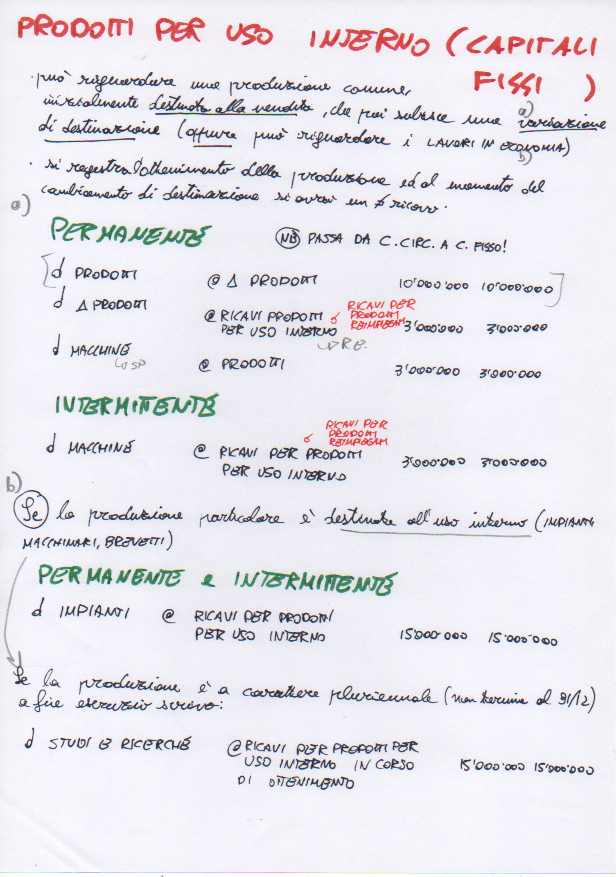 PRODOTTI PER USO INTERNO (CAPITALI
FISSI)
· può riguardare una produzione comune,
inizialmente destinata alla vendita, che poi subisce una variazione a)
di destinazione (oppure può riguardare i LAVORI IN ECONOMIA) b)
· si registra l'ottenimento della produzione ed al momento del
cambiamento di destinazione si avrà un ≠ ricavo.
a)
PERMANENTE NB PASSA DA C. CIRC. A C. FISSO!
d PRODOTTI @ Δ PRODOTTI 10'000'000 10'000'000
d Δ PRODOTTI @ RICAVI PRODOTTI PER USO INTERNO 3'000'000 3'000'000
o RICAVI PER PRODOTTI REIMPIEGATI
RE.
d MACCHINE @ PRODOTTI 3'000'000 3'000'000
SP
INTERMITTENTE
o RICAVI PER PRODOTTI REIMPIEGATI
d MACCHINE @ RICAVI PER PRODOTTI PER USO INTERNO 3'000'000 3'000'000
b)
Se la produzione particolare è destinata all'uso interno (IMPIANTI
MACCHINARI, BREVETTI)
PERMANENTE e INTERMITTENTE
d IMPIANTI @ RICAVI PER PRODOTTI PER USO INTERNO 15'000'000 15'000'000
Se la produzione è a carattere pluriennale (non termina al 31/12)
a fine esercizio scrivo:
d STUDI E RICERCHE @ RICAVI PER PRODOTTI PER
USO INTERNO IN CORSO 15'000'000 15'000'000
DI OTTENIMENTO